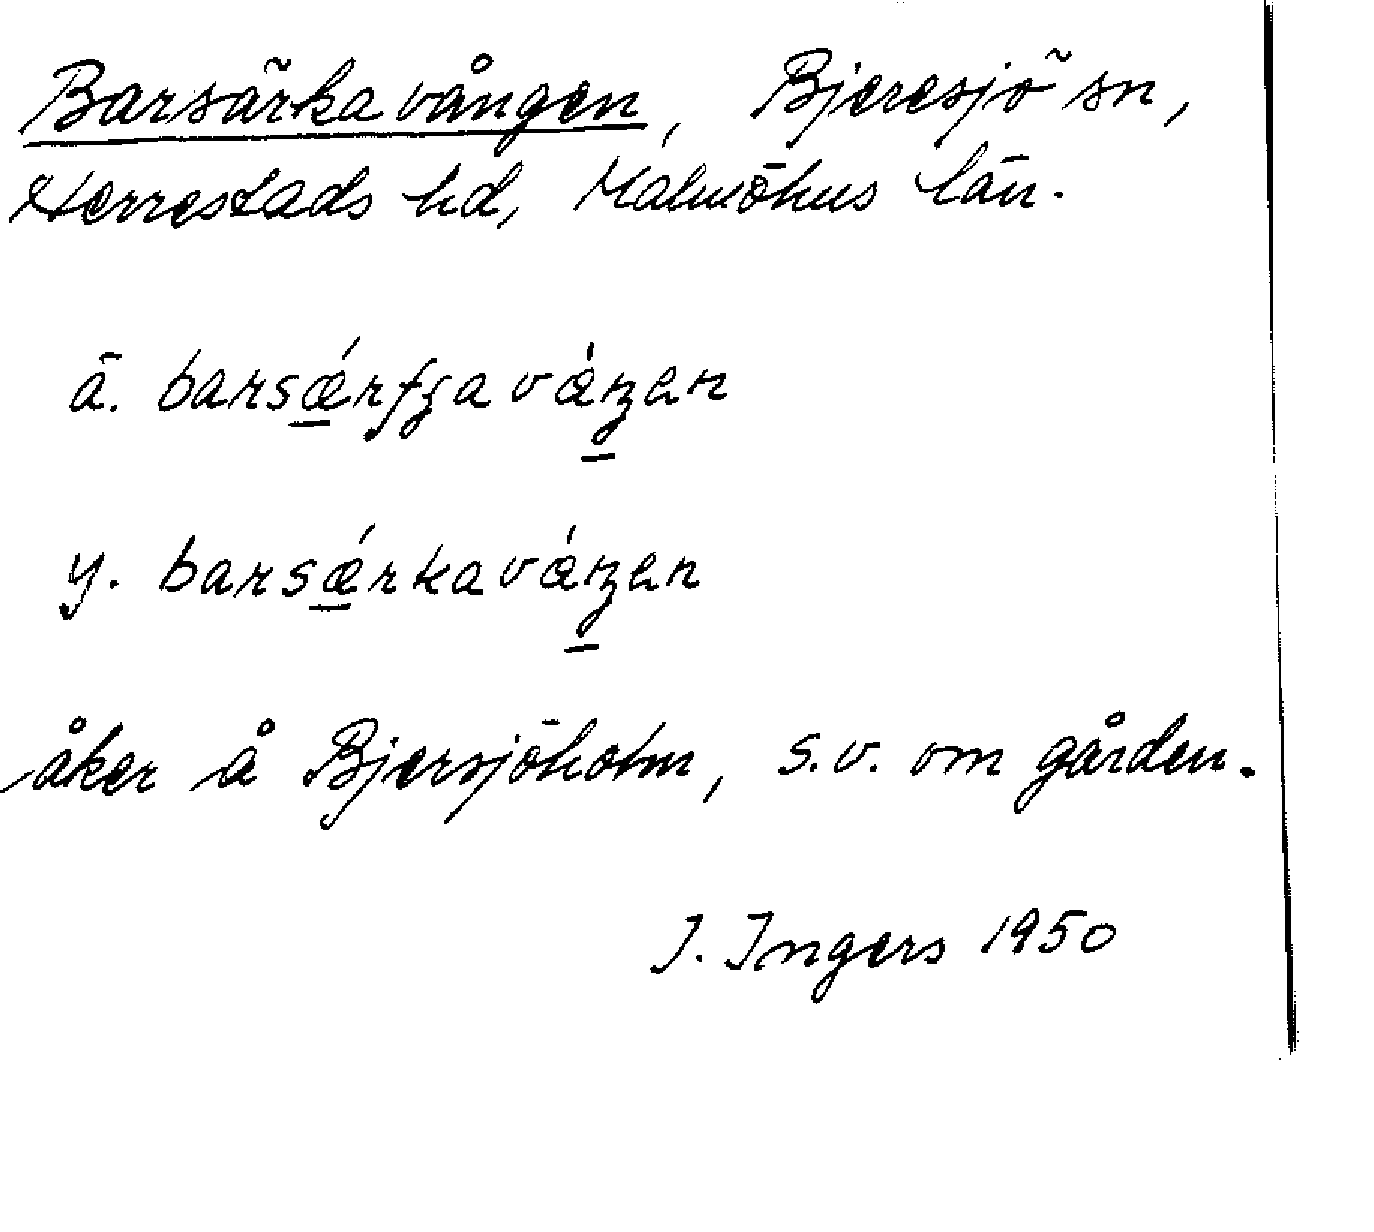 Barsärkavången, Bjeresjö sn,
Herrestads hd, Malmöhus län.
ä.
y.
åker å Bjersjöholm, s.v. om gården.
I. Ingers 1950